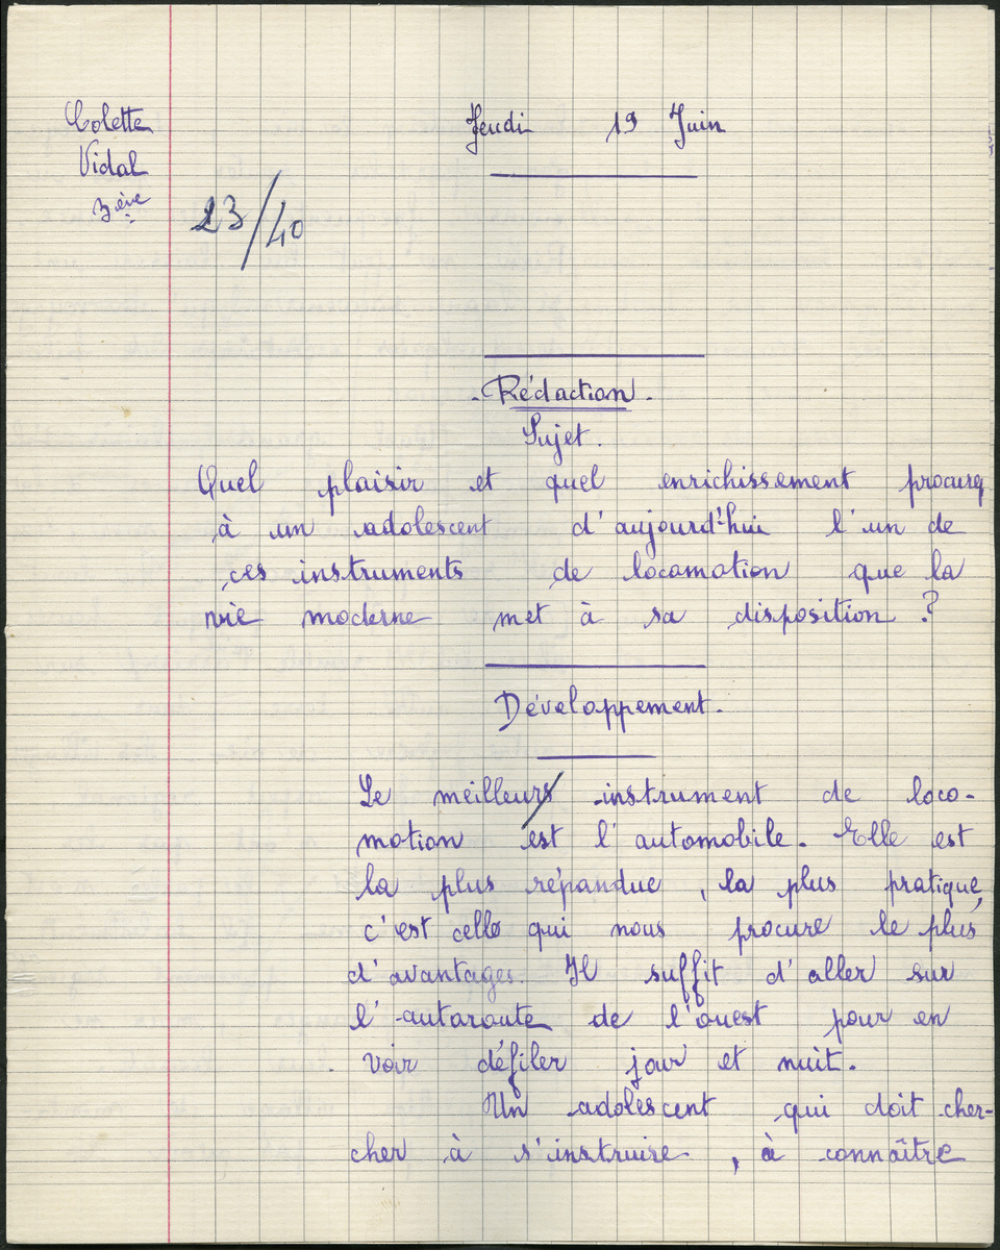 Colette
Vidal
3ève
Jeudi 19 Juin
23/40
. Rédaction .
Sujet .
Quel plaisir et quel enrichissement procure
à un adolescent d'aujourd'hui l'un de
ces instruments de locomotion que la
vie moderne met à sa disposition ?
Développement .
Le meilleurs instrument de loco-
motion est l'automobile. Elle est
la plus répandue , la plus pratique,
c'est celle qui nous procure le plus
d'avantages. Il suffit d'aller sur
l'autoroute de l'ouest pour en
voir défiler jour et nuit.
Un adolescent qui doit cher-
cher à s'instruire , à connaître